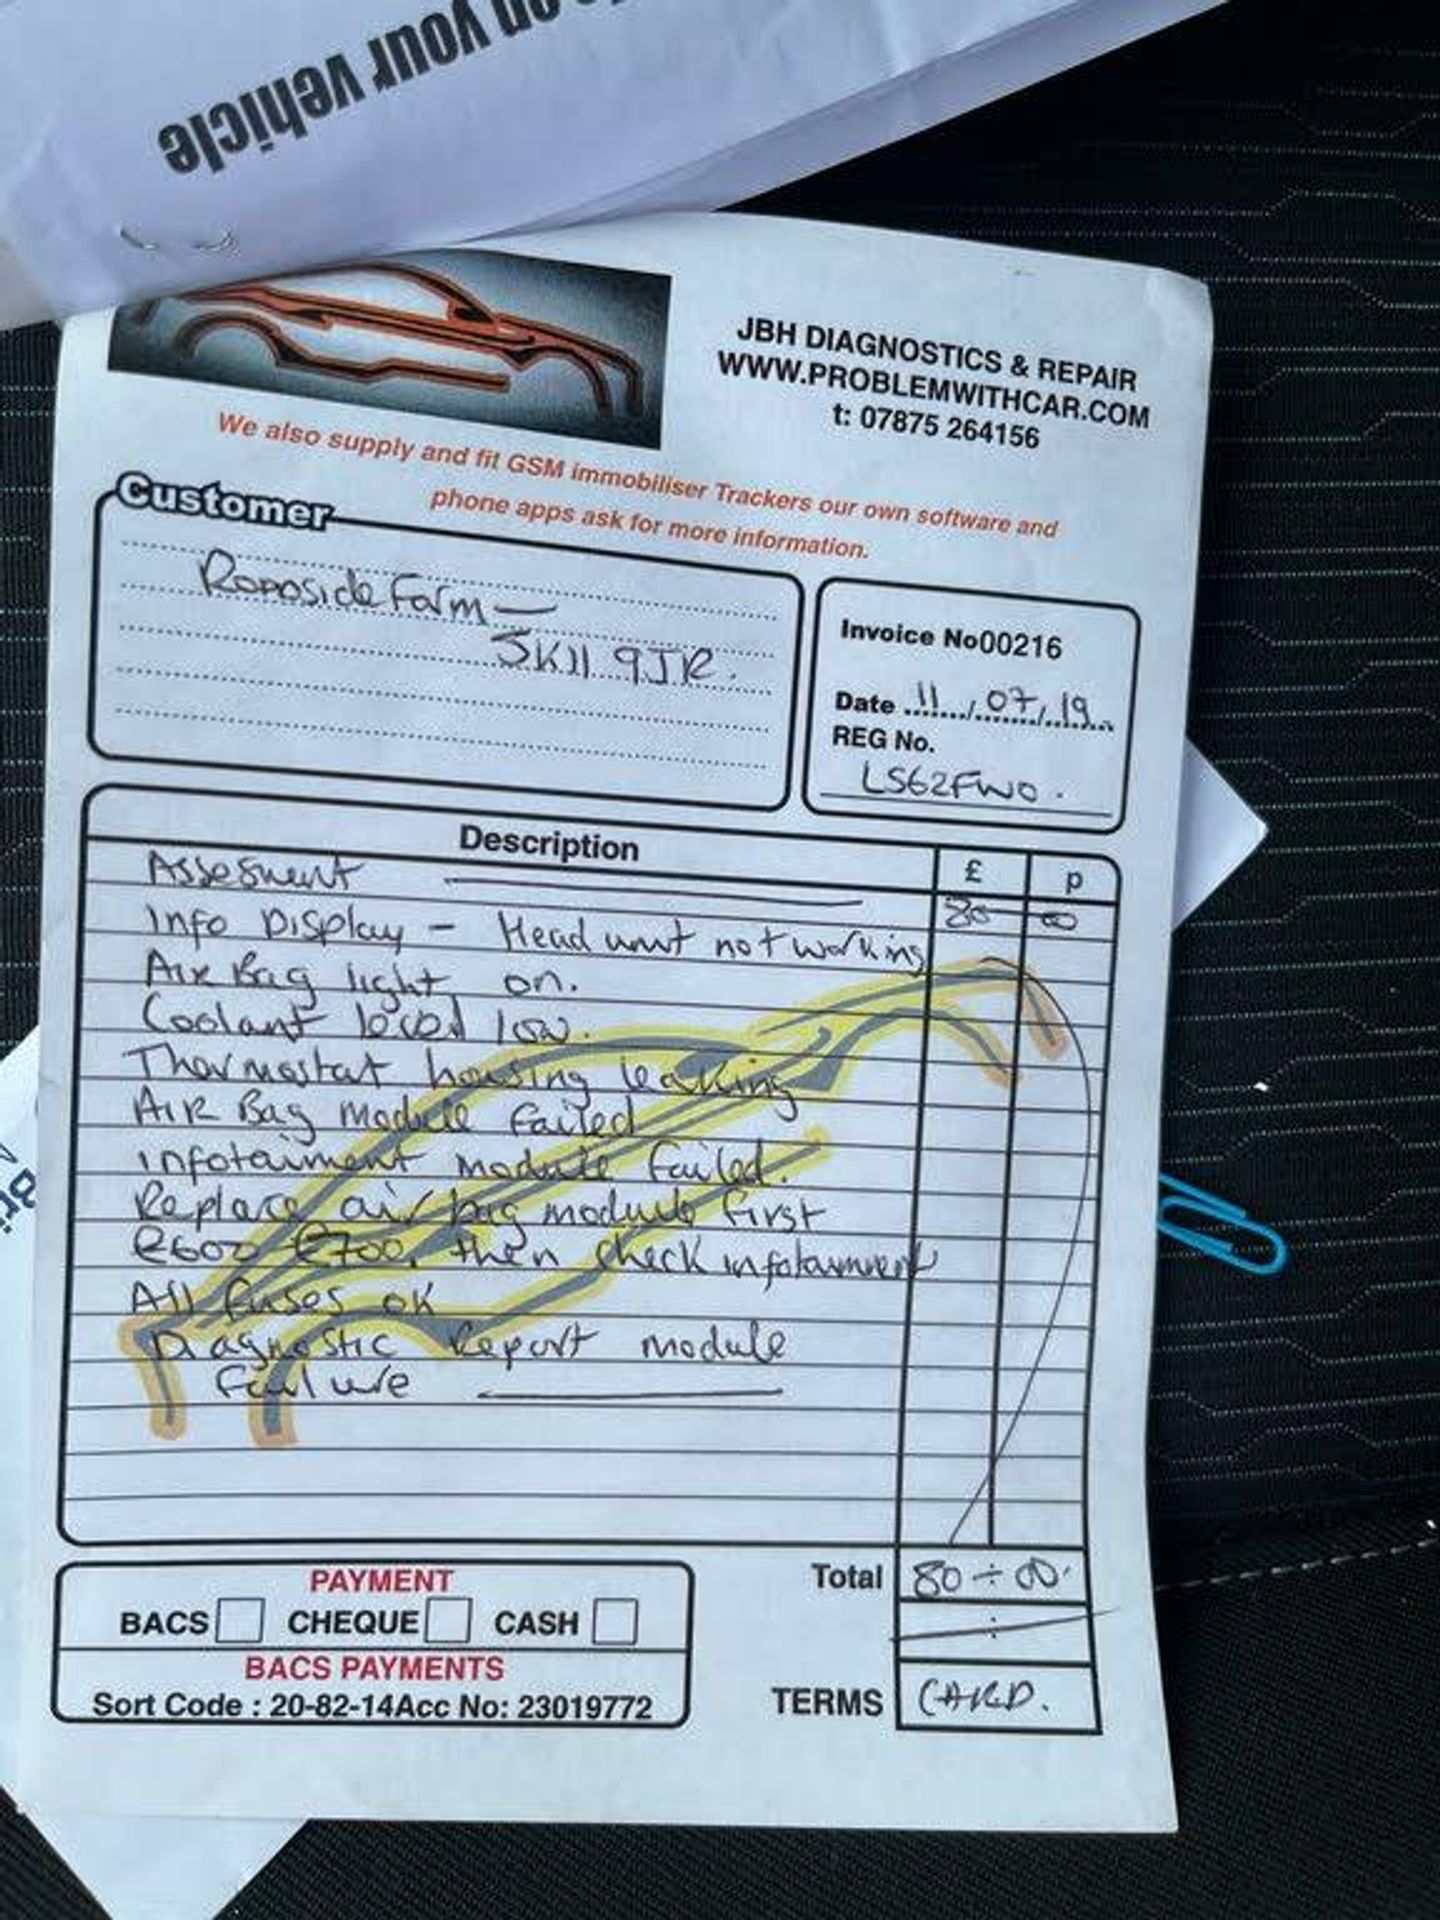 on your vehicle
JBH DIAGNOSTICS & REPAIR
WWW.PROBLEMWITHCAR.COM
t: 07875 264156
We also supply and fit GSM immobiliser Trackers our own software and
phone apps ask for more information.
Customer
Roposide Farm -
SK11 9JR.
Invoice No00216
Date 11/07/19
REG No.
LS62FWO.
Description £ p
Assesment 80 00
Info Display - Head unit not working
Air Bag light on.
Coolant level low.
Thermostat housing leaking
AIR Bag module failed
infotainment module failed.
Replace air bag module first
£600 - £700, then check infotainment
All fuses ok
Diagnostic Report module
failure
PAYMENT
BACS CHEQUE CASH
BACS PAYMENTS
Sort Code : 20-82-14Acc No: 23019772
Total 80 ÷ 00.
TERMS CARD.